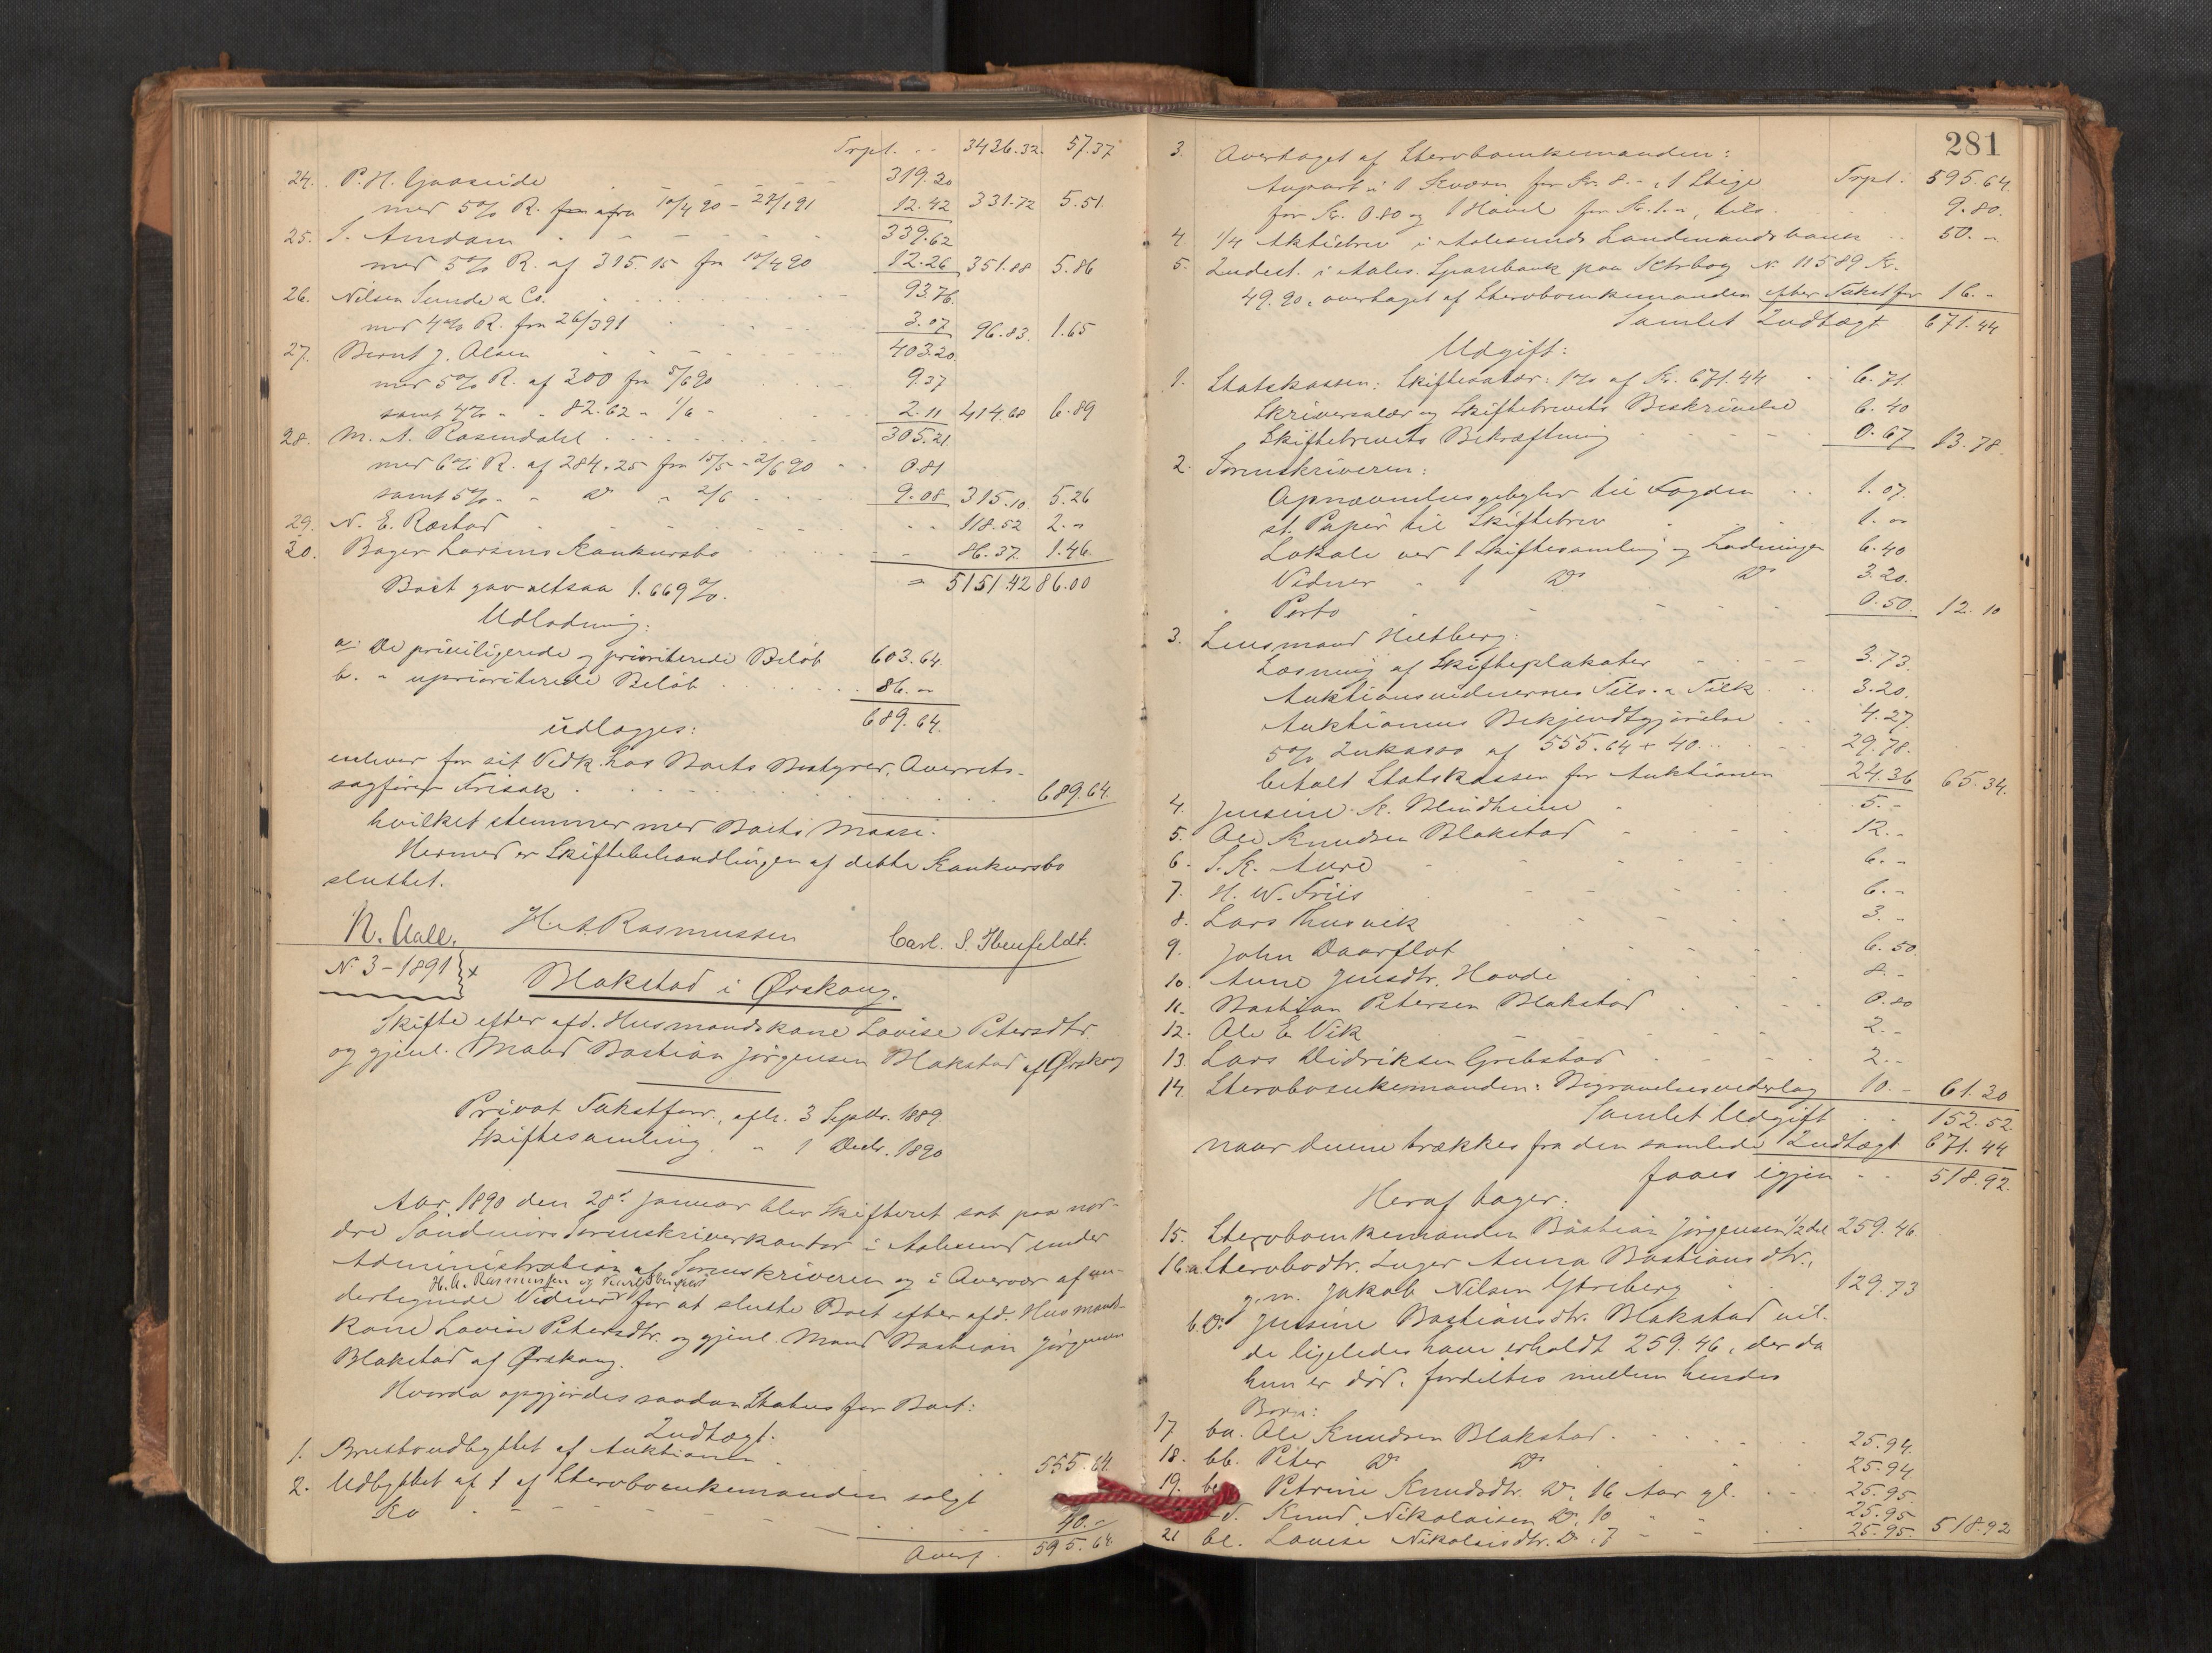 Trpt. .. 3436.32. 57.37
24. P. H. Gaaseide 319.20
med 5% R. fra 10/4 90 – 27/1 91 12.42 331.72 5.51
25. S. Amdam 339.62
med 5% R. af 315.15 fra 10/4 90 12.26 351.88 5.86
26. Nilsen Sunde & Co. 93.76.
med 4% R. fra 26/3 91 3.07 96.83. 1.65
27. Bernt J. Olsen 403.20
med 5% R. af 300 fra 5/6 90 9.37
samt 4% " " 82.62 " 1/6 " 2.11 414.68 6.89
28. M. A. Rosendahl 305.21
med 6% R. af 284.25 fra 15/5 – 2/6 90 0.81
samt 5% " " Do " 2/6 9.08 315.10 5.26
29. N. E. Ræstad 118.52 2.-
30. Bager Larsens Konkursbo 86.37. 1.46
Boet gav altsaa 1.669%. = 5151.42 86.00
Udlodning:
a. De priviligerede og prioriterede Beløb 603.64.
b. " uprioriterede Beløb 86.-
689.64.
udlægges:
enhver for sit Vedk. hos Boets Bestyrer, Overrets-
sagfører Frisak 689.64.
hvilket stemmer med Boets Masse.
Hermed er Skiftebehandlingen af dette Konkursbo
sluttet.
N. Aall. H. A. Rasmussen Carl. S. Ibenfeldt.
N. 3 – 1891 +
Blakstad i Ørskoug.
Skifte efter afd. Husmandskone Lovise Petersdtr.
og gjenl. Mand Bastian Jørgensen Blakstad af Ørskog
Privat Takstforr., afh. 3 Septbr. 1889.
Skiftesamling " 1 Decbr. 1890
Aar 1890 den 28d Januar blev Skifteret sat paa nor-
dre Søndmørs Sorenskriverkontor i Aalesund under
Administration af Sorenskriveren og i Overvær af un-
H. A. Rasmussen og
dertegnede Vidner for at slutte Boet efter afd. Husmands-
kone Lovise Petersdtr. og gjenl. Mand Bastian Jørgensen
Blakstad af Ørskoug.
Hvorda opgjordes saadan Status for Boet:
Indtægt.
1. Bruttoudbyttet af Auktionen 555.64
2. Udbyttet af 1 af Stervboenkemanden solgt
Ko 40.-
Overf. 595.64
281
3. Overtaget af Stervboenkemanden: Trpt. 595.64.
Anpart i 1 Kværn for Kr. 8.-, 1 Stige
for Kr. 0.80 og 1 Høvel for Kr. 1.-, tils. 9.80.
4. 1/4 Aktiebrev i Aalesunds Landmandsbank 50.-
5. Indest. i Aales. Sparebank paa Ktrbog N. 11589 Kr.
49.90, overtaget af Stervboenkemanden efter Takst for 16.-
Samlet Indtægt 671.44
Udgift:
1. Statskassen: Skiftesalær: 1% af Kr. 671.44 6.71.
Skriversalær og Skiftebrevets Beskrivelse 6.40
Skiftebrevets Bekræftning 0.67 13.78.
2. Sorenskriveren:
Opnævnelsesgebyhr til Fogden 1.07.
st. Papir til Skiftebrev 1.-
Lokale ved 1 Skiftesamling og Lodningen 6.40
Vidner " 1 Do Do 3.20.
Porto 0.50. 12.10
3. Lensmand Hiltberg:
Læsning af Skifteplakater 3.73.
Auktionsvidnernes Tils. & Tilk 3.20.
Auktionens Bekjendtgjørelse 4.27.
5% Inkasso af 555.64 + 40 29.78.
betalt Statskassen for Auktionen 24.36 65.34.
4. Jensine K. Blindheim 5.-
5. Ole Knudsen Blakstad 12.-
6. S. K. Aure 6.-
7. H. W. Friis 6.-
8. Lars Thusvik 3.-
9. John Daarflot 6.50
10. Anne Jensdtr. Hovde 8.-
11. Bastian Petersen Blakstad 0.80
12. Ole E. Vik 2.-
13. Lars Didriksen Grebstad 2.-
14. Stervboenkemanden: Begravelsesvederlag 10.- 61.20
Samlet Udgift 152.52.
naar denne trækkes fra den samlede Indtægt 671.44
faaes igjen 518.92.
Heraf tager:
15. Stervboenkemanden Bastian Jørgensen 1/2 del 259.46
16. a. Stervbodtr. Inger Anna Bastiansdtr.,
g. m. Jakob Nilsen Ytreberg 129.73
b. Do Jensine Bastiansdtr. Blakstad vil-
de ligeledes have erholdt 259.46, der da
hun er død, fordeltes mellem hendes
Børn:
17. ba. Ole Knudsen Blakstad 25.94.
18. bb. Peter Do Do 25.94
19. bc. Petrine Knudsdtr. Do, 16 Aar gl. 25.95.
d. Knud Nikolaisen Do, 10 " " 25.95
21 be. Lovise Nikolaisdtr. Do, 7 " " 25.95. 518.92